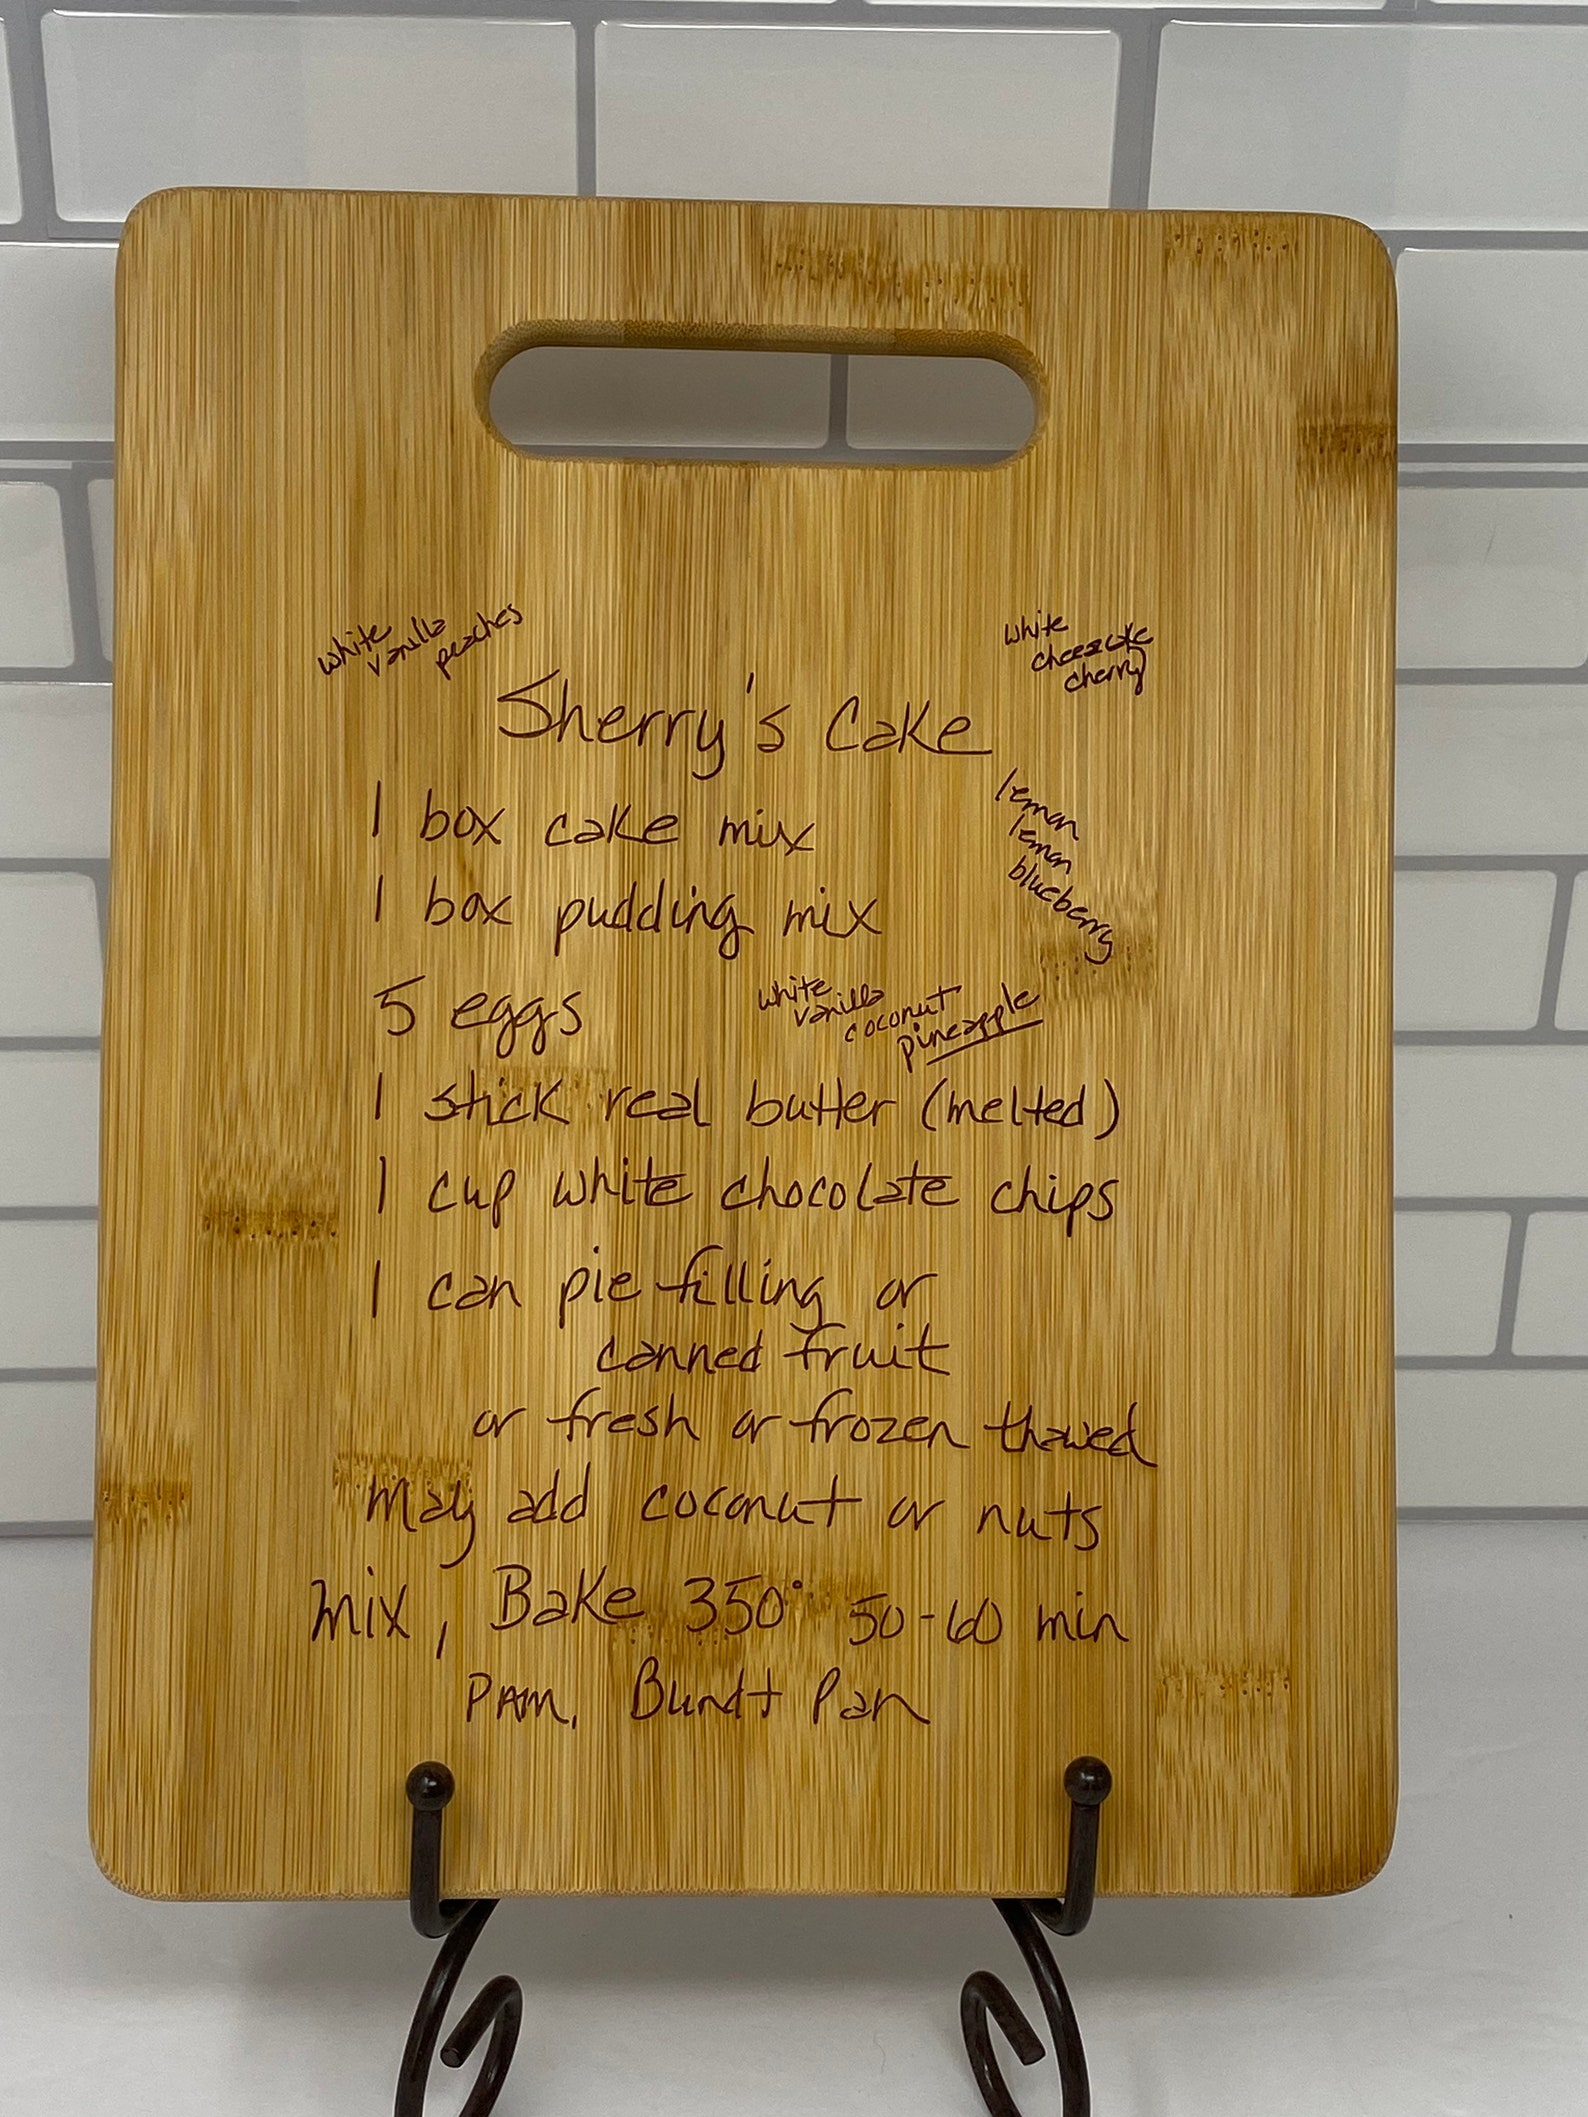 white
vanilla
peaches
white
cheesecake
cherry
Sherry's Cake
lemon
lemon
blueberry
1 box cake mix
1 box pudding mix
5 eggs
white
vanilla
coconut
pineapple
1 stick real butter (melted)
1 cup white chocolate chips
1 can pie filling or
canned fruit
or fresh or frozen thawed
may add coconut or nuts
mix, Bake 350° 50-60 min
PAM, Bundt Pan